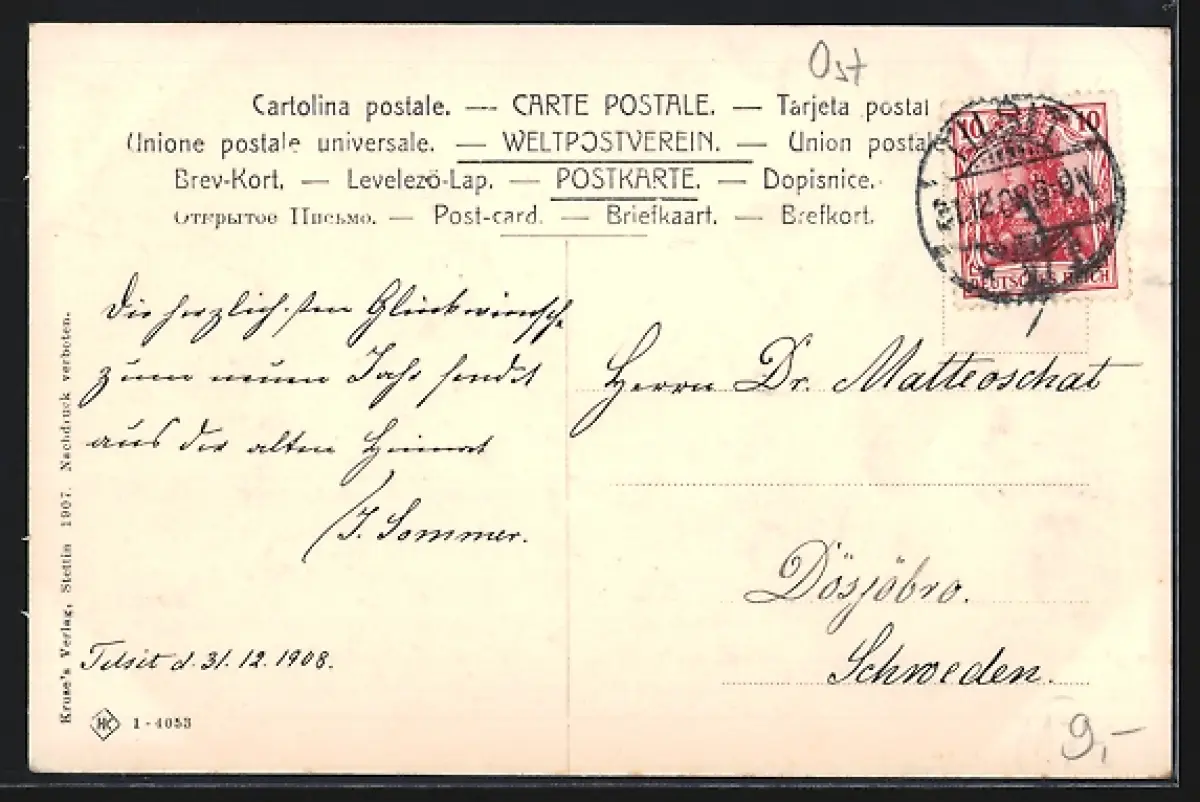 Ost
Cartolina postale. — CARTE POSTALE. — Tarjeta postal
Unione postale universale. — WELTPOSTVEREIN. — Union postale
Brev-Kort. — Levelező-Lap. — POSTKARTE. — Dopisnice.
Открытое Письмо. — Post-card. — Briefkaart. — Brefkort.
10 10
TILSIT
31.12.08.8-9N
DEUTSCHES REICH
Die herzlichsten Glückwünsche
zum neuen Jahr sendet
aus der alten Heimat
J. Sommer.
Tilsit d. 31. 12. 1908.
Herrn Dr. Matteoschat
Dösjöbro.
Schweden.
Kruse's Verlag, Stettin 1907. Nachdruck verboten.
HK 1-4053
9,-